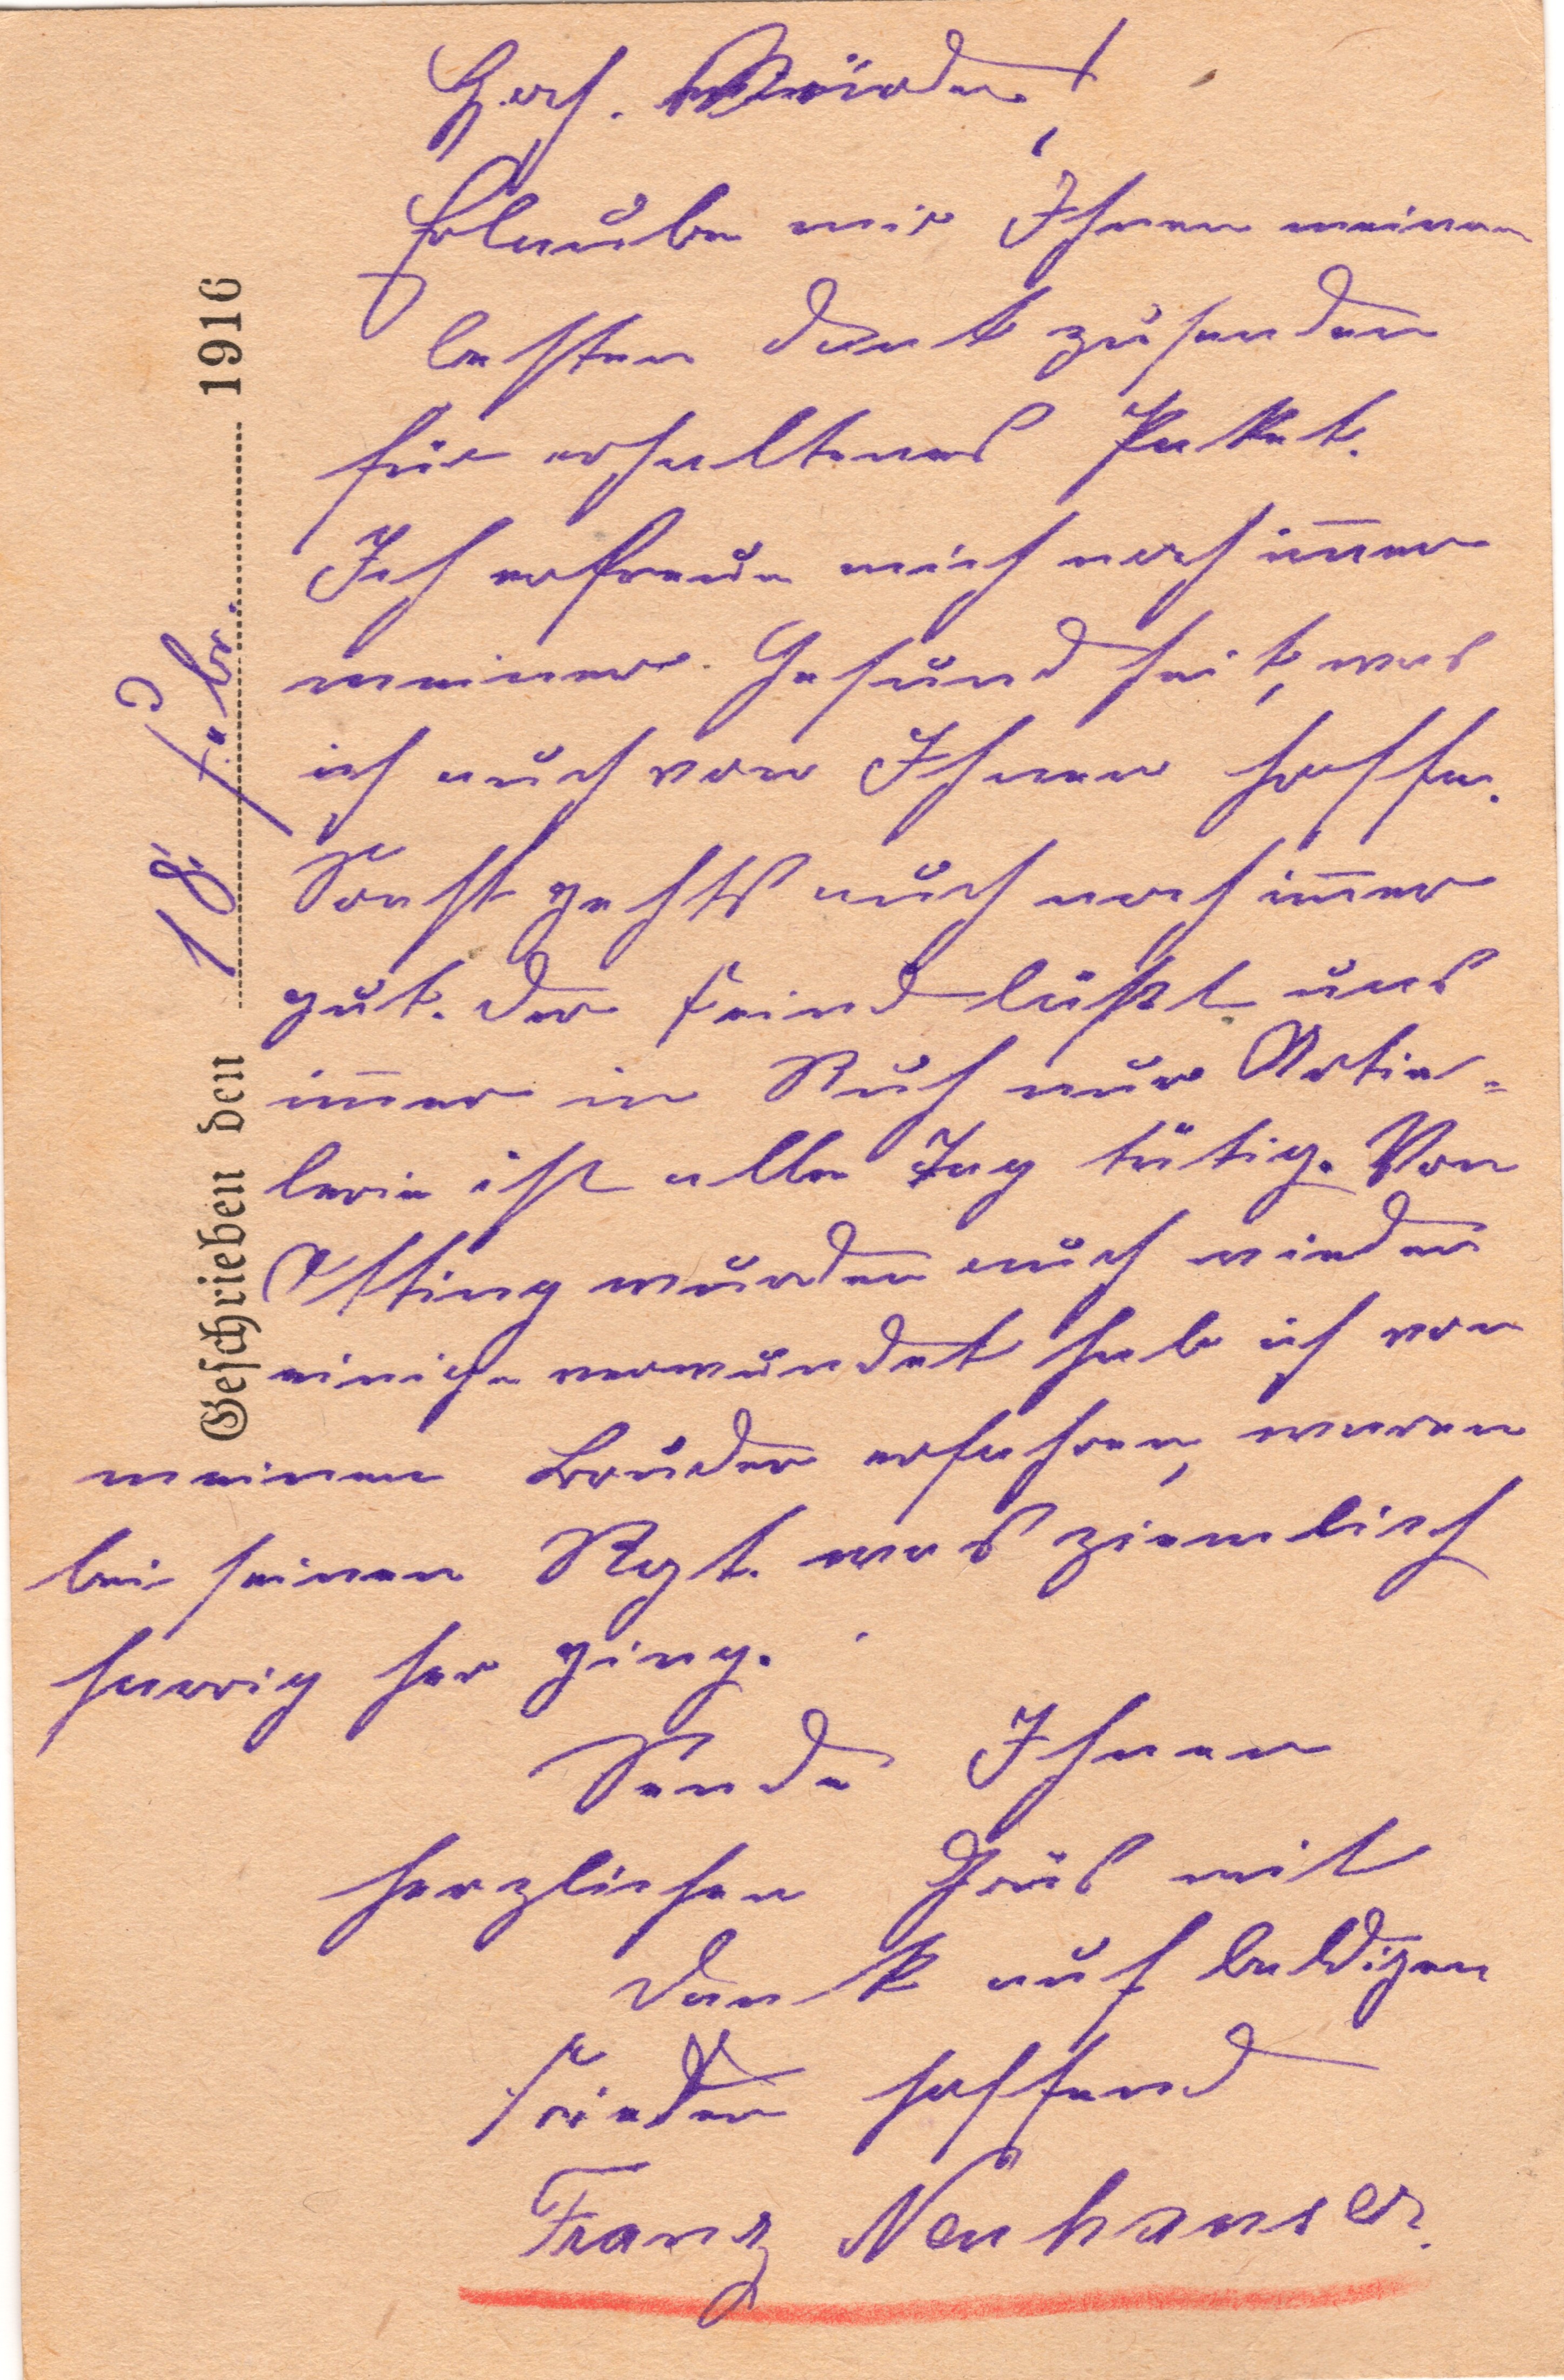 Geschrieben den 18. Febr. 1916
Hoch. Würden!
Erlaube mir Ihnen meinen
besten Dank zusenden
für erhaltenes Paket.
Ich erfreue mich noch im̅er
meiner Gesundheit, was
ich auch von Ihnen hoffe.
Sonst gehts auch noch im̅er
gut. Der Feind läßt uns
im̅er in Ruh nur Artie-
lerie ist alle Tag tätig. Von
Otting wurden auch wieder
einige verwundet hab ich von
meinen Bruder erfahren, waren
bei seinen Rgt. was ziemlich
haarig her ging.
Sende Ihnen
herzlichen Grus mit
Dank auf baldigen
Frieden hoffend
Franz Neuhauser.